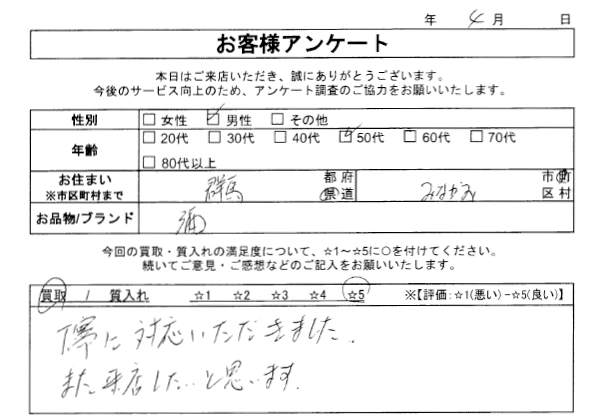 年 4月 日
お客様アンケート
本日はご来店いただき、誠にありがとうございます。
今後のサービス向上のため、アンケート調査のご協力をお願いいたします。
性別 □女性 ☑男性 □その他
年齢 □20代 □30代 □40代 ☑50代 □60代 □70代
□80代以上
お住まい ※市区町村まで 群馬 都府県道 みなかみ 市町区村
お品物/ブランド 酒
今回の買取・質入れの満足度について、☆1～☆5に○を付けてください。
続いてご意見・ご感想などのご記入をお願いいたします。
買取 / 質入れ ☆1 ☆2 ☆3 ☆4 ☆5 ※【評価:☆1(悪い)-☆5(良い)】
丁寧に対応いただきました。
また来店したいと思います。